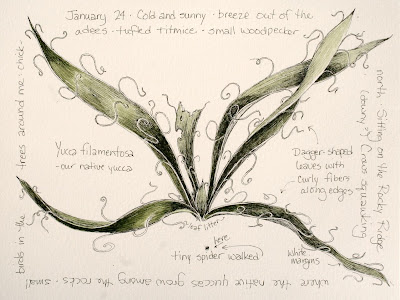 January 24 · Cold and sunny · breeze out of the
north · Sitting on the Rocky Ridge
where the native yuccas grow among the rocks · small
birds in the trees around me · chick-
adees · tufted titmice · small woodpecker
Crows squawking
Yucca filamentosa
- our native yucca
Dagger-shaped
leaves with
curly fibers
along edges
leaf litter
here
tiny spider walked
white
margins